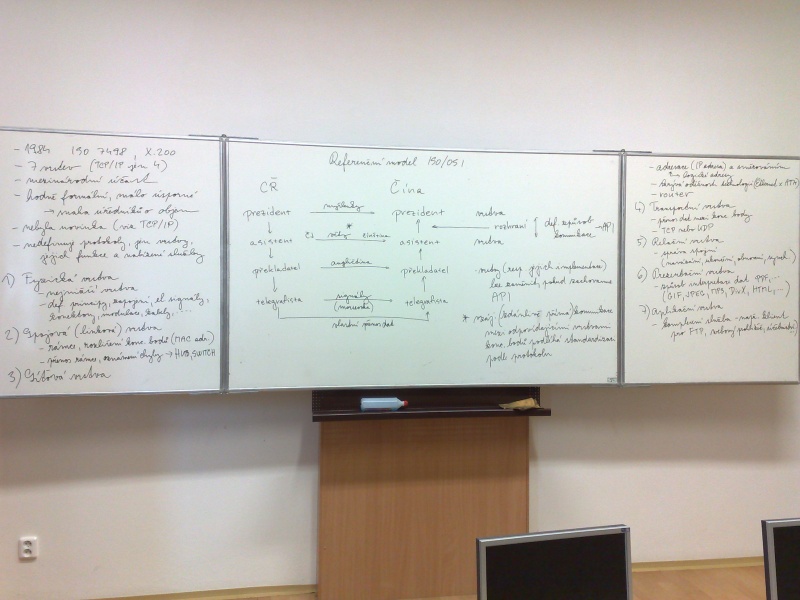 - 1984 ISO 7498 X.200
- 7 vrstev (TCP/IP jen 4)
- mezinárodní účast
- hodně formální, málo úsporné
→ málo úředníků o objem
- nebyla novinka (viz TCP/IP)
- nedefinuj protokoly, jen vrstvy,
jejich funkce a nabízené služby
1) Fyzická vrstva
- nejnižší vrstva
- def. principy, zapojení, el. signály,
konektory, modulace, kabely, ...
2) Spojová (linková) vrstva
- rámce, rozlišení konc. bodů (MAC adr.)
- přenos rámců, oznámení chyby → HUB, SWITCH
3) Síťová vrstva
Referenční model ISO/OSI
ČR Čína
prezident myšlenky prezident vrstva
* rozhraní def. způsob
komunikace → API
asistent ČJ věty čínština asistent vrstva
překladatel angličtina překladatel
vrstvy (resp. jejich implementace)
lze zaměnit, pokud zachováme
API
telegrafista signály telegrafista
(morseovka)
vlastní přenos dat
* vzáj. (zdánlivě přímá) komunikace
mezi odpovídajícími vrstvami
konc. bodů podléhá standardizaci
podle protokolu
- adresace (IP adresa) a směrování
↳ logické adresy
- skrývá odlišnosti technologií (Ethernet x ATM)
- router
4) Transportní vrstva
- přenos dat mezi konc. body
- TCP nebo UDP
5) Relační vrstva
- správa spojení
(navázání, ukončení, obnovení, synch.)
6) Prezentační vrstva
- způsob interpretace dat PDF,
(GIF, JPEG, MP3, DivX, HTML, ...)
7) Aplikační vrstva
- komplexní služba - např. klient
pro FTP, webový prohlížeč,